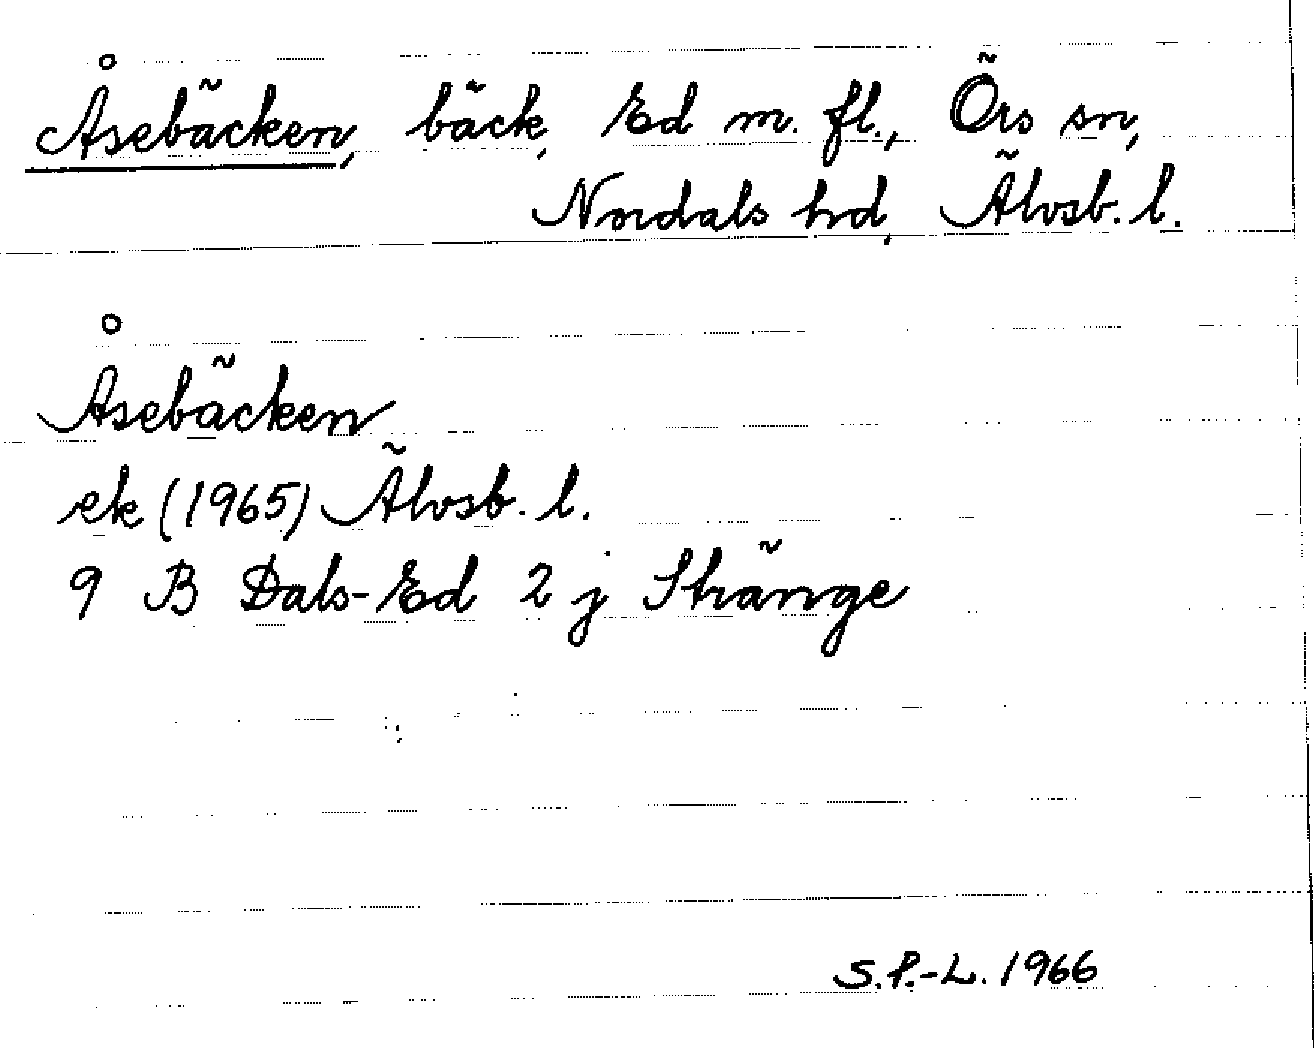 Åsebäcken, bäck, Ed m. fl., Örs sn,
Nordals hd, Älvsb. l.
Åsebäcken
ek (1965) Älvsb. l.
9 B Dals-Ed 2 j Stränge
S.P.-L. 1966